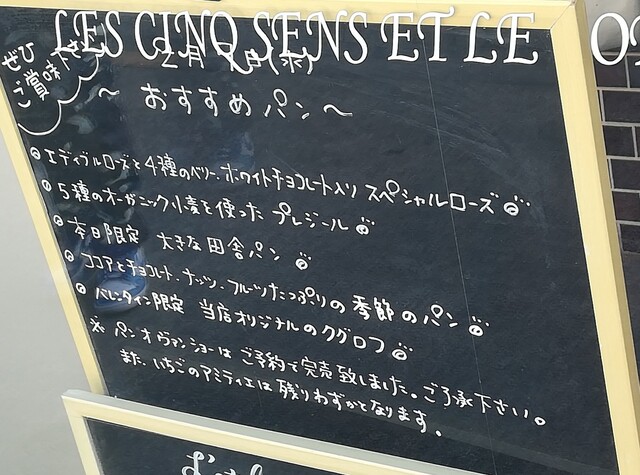 LES CINQ SENS ET LE
ぜひ
ご賞味下さい
2月 日(水)
〜おすすめパン〜
エディブルローズと4種のベリー、ホワイトチョコレート入り スペシャルローズ
5種のオーガニック小麦を使った プレジール
本日限定 大きな田舎パン
ココアとチョコレート、ナッツ、フルーツたっぷりの季節のパン
バレンタイン限定 当店オリジナルのクグロフ
※ パン オ ヴァンショーは ご予約で完売致しました。ご了承下さい。
また、いちごのアミティエは 残りわずかとなります。